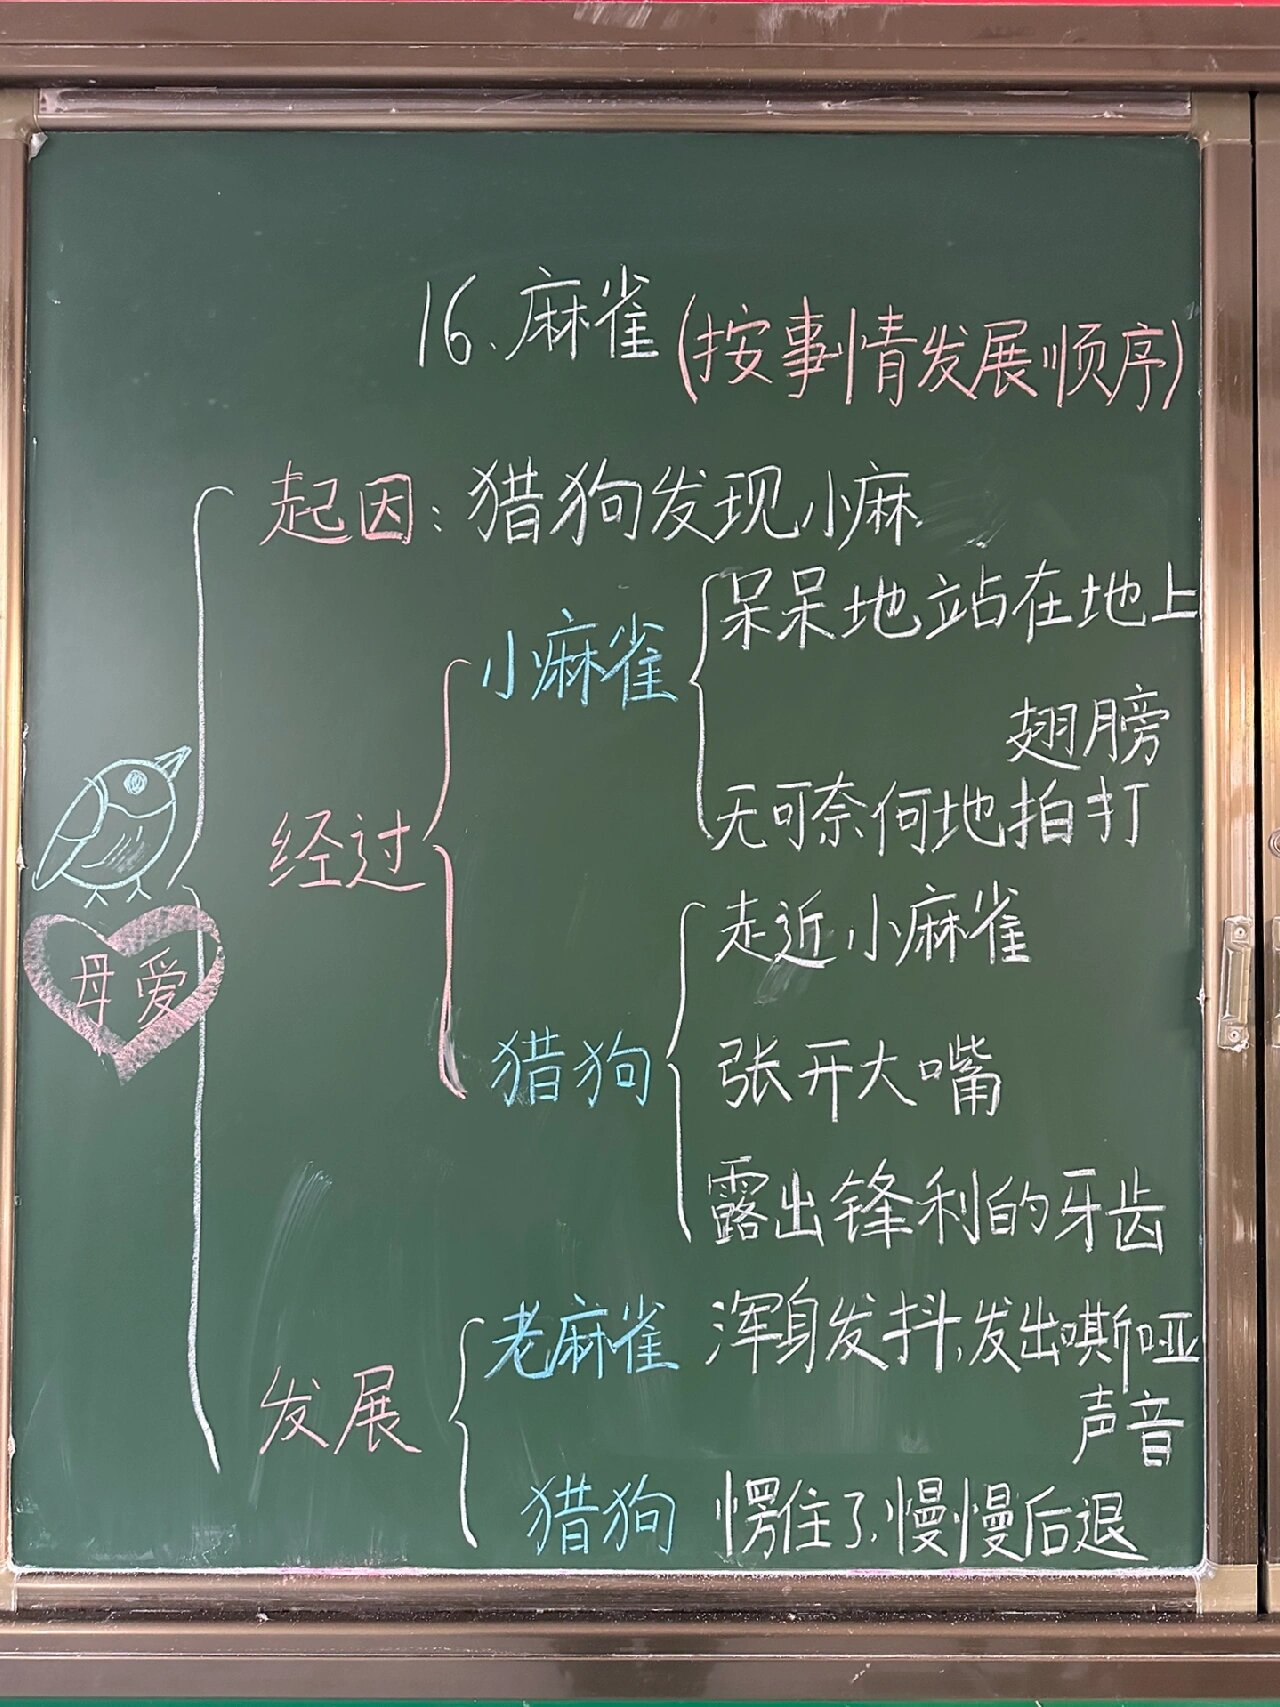 16、麻雀(按事情发展顺序)
起因:猎狗发现小麻
经过
小麻雀
呆呆地站在地上
翅膀
无可奈何地拍打
猎狗
走近小麻雀
张开大嘴
露出锋利的牙齿
母爱
发展
老麻雀 浑身发抖,发出嘶哑
声音
猎狗 愣住了,慢慢后退